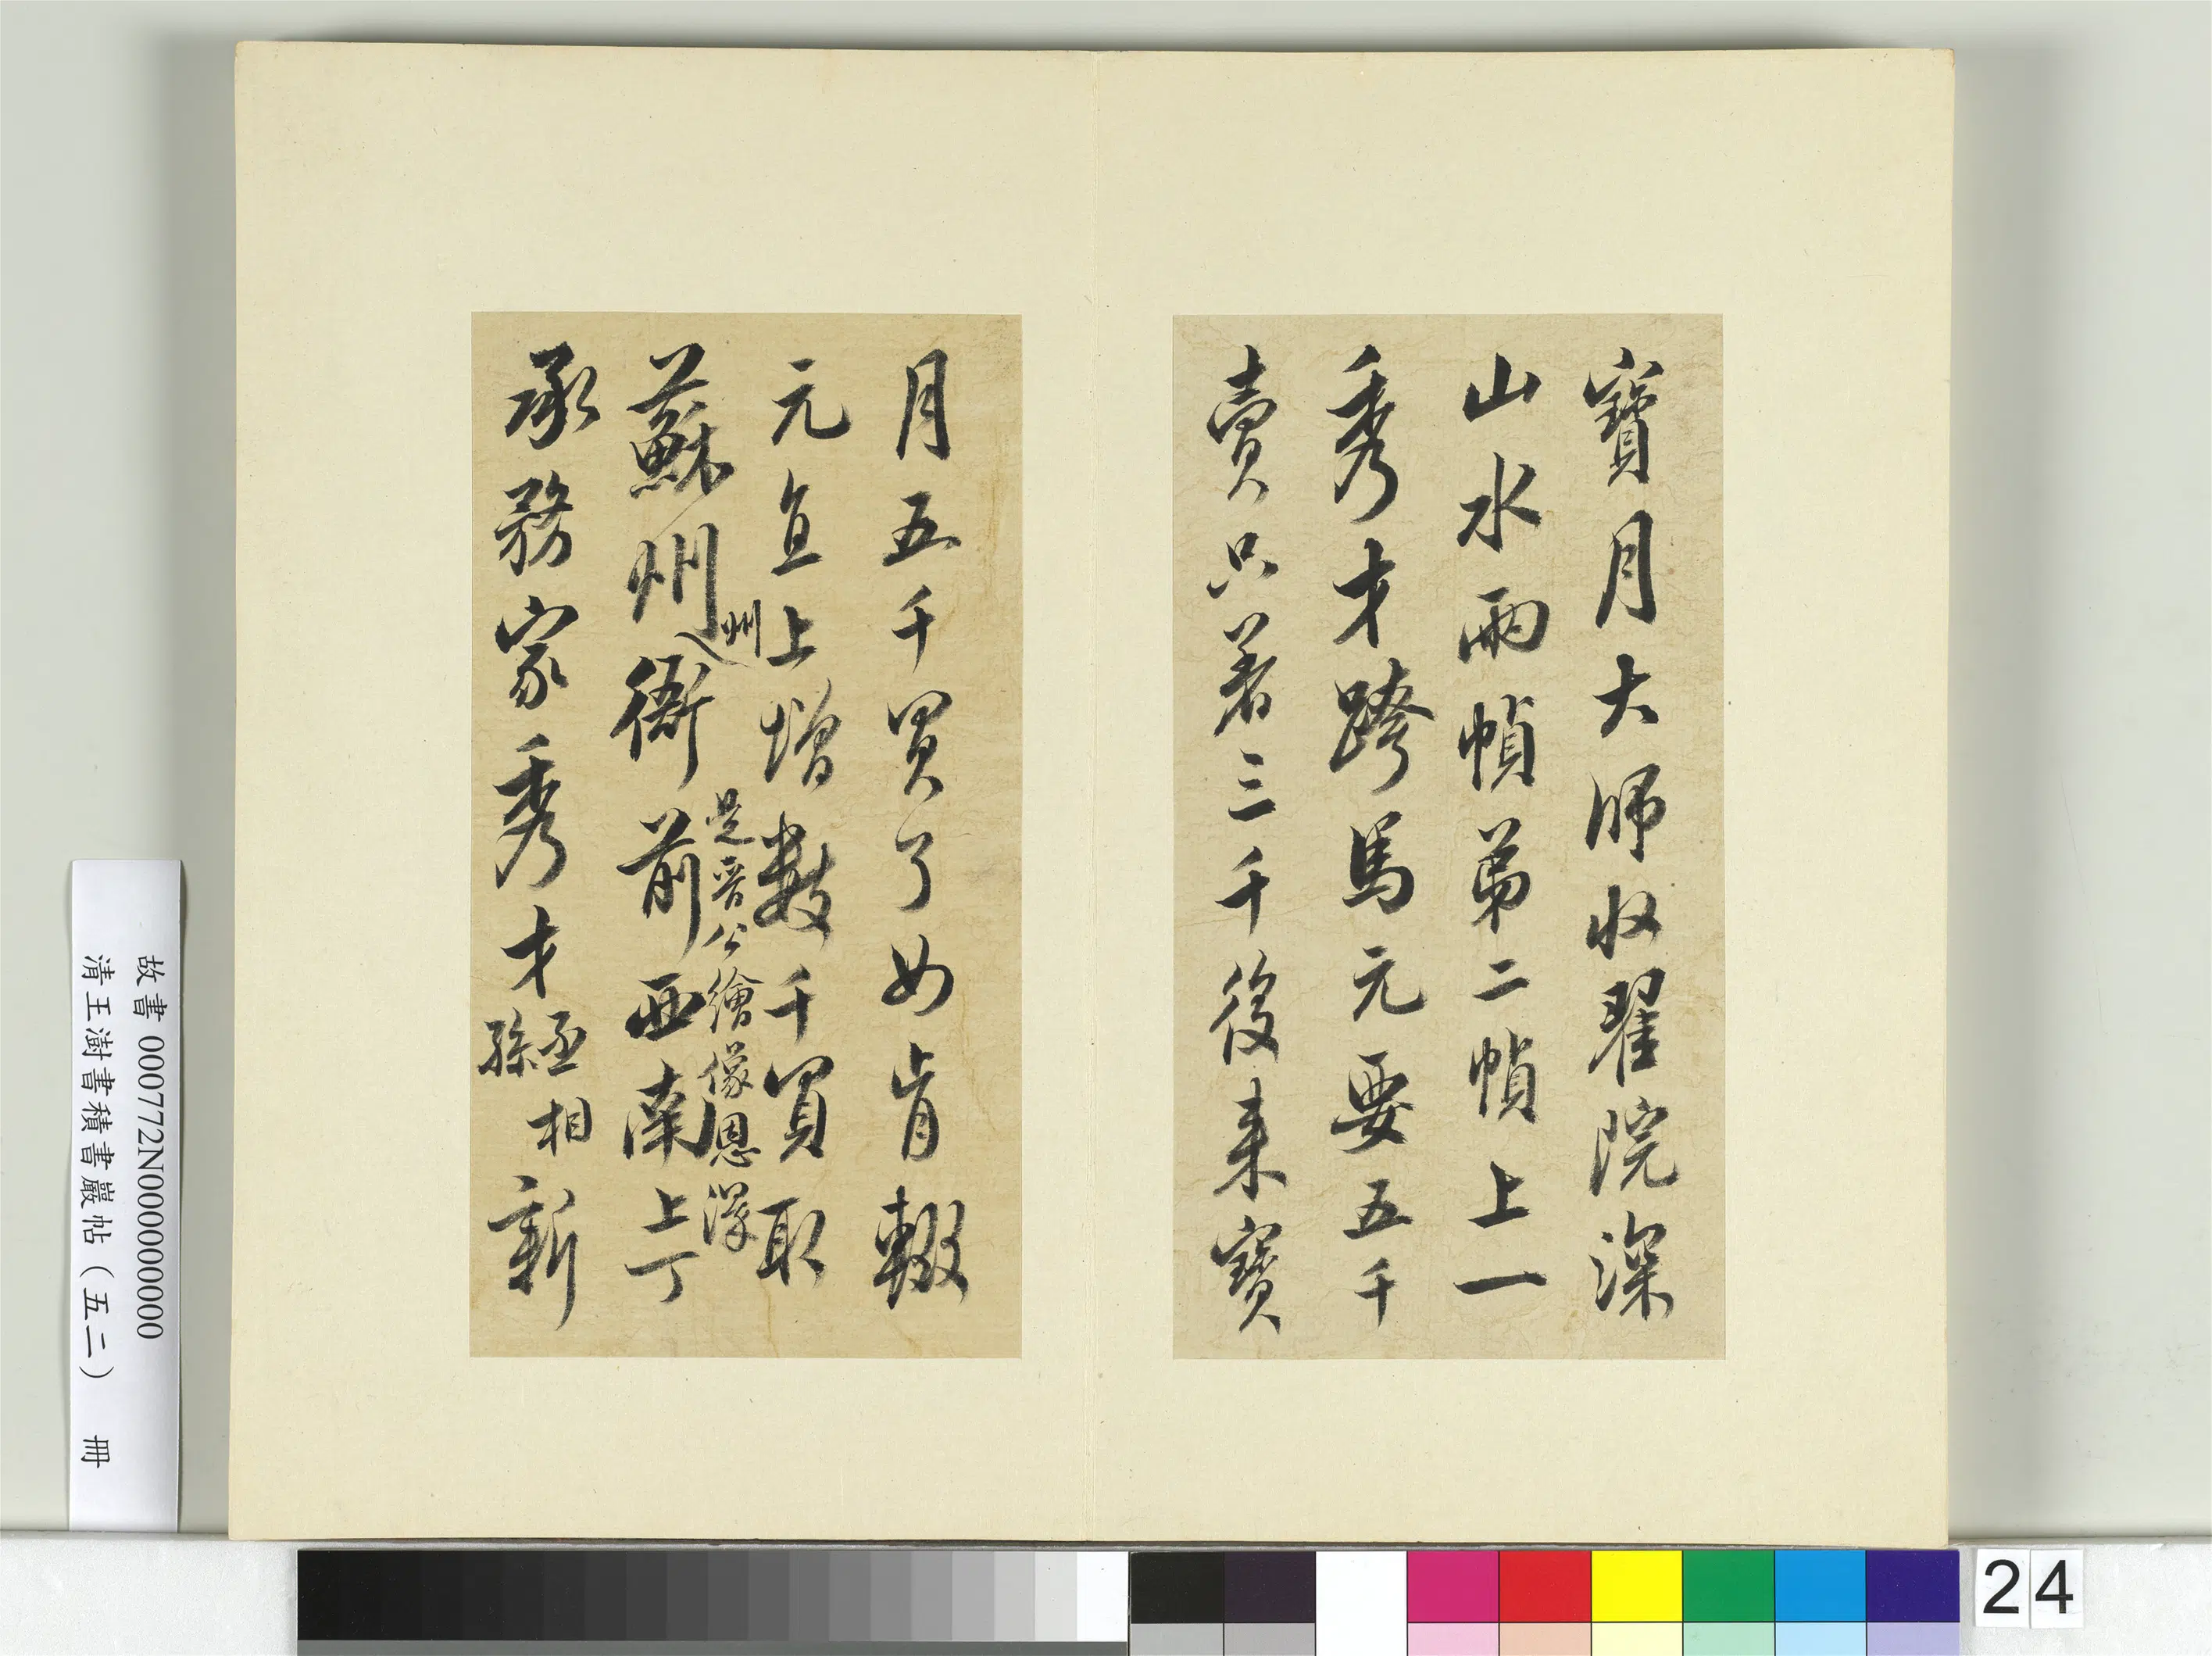 寶月大師收翟院深
山水兩幀第二幀上一
秀才跨馬元要五千
賣只著三千後來寶
月五千買了如肯輟
元直上增數千買取
蘇州衙前西南上丁
州
是晉公繪像恩澤
承務家秀才丞相孫新
故書 000772N000000000
清王澍書積書巖帖（五二） 冊
24